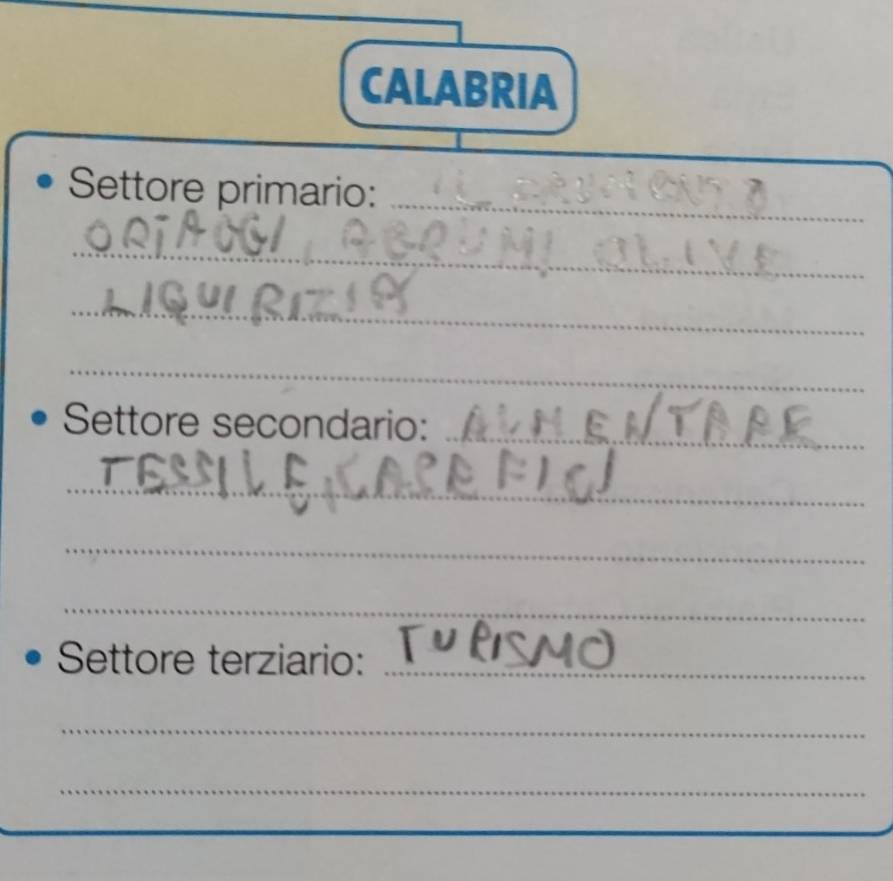 CALABRIA
• Settore primario: IL
ORTAGGI, AGRUMI OLIVE
LIQUIRIZIA
• Settore secondario: ALMENTARE
TESSILE, CASEFICI
• Settore terziario: TURISMO